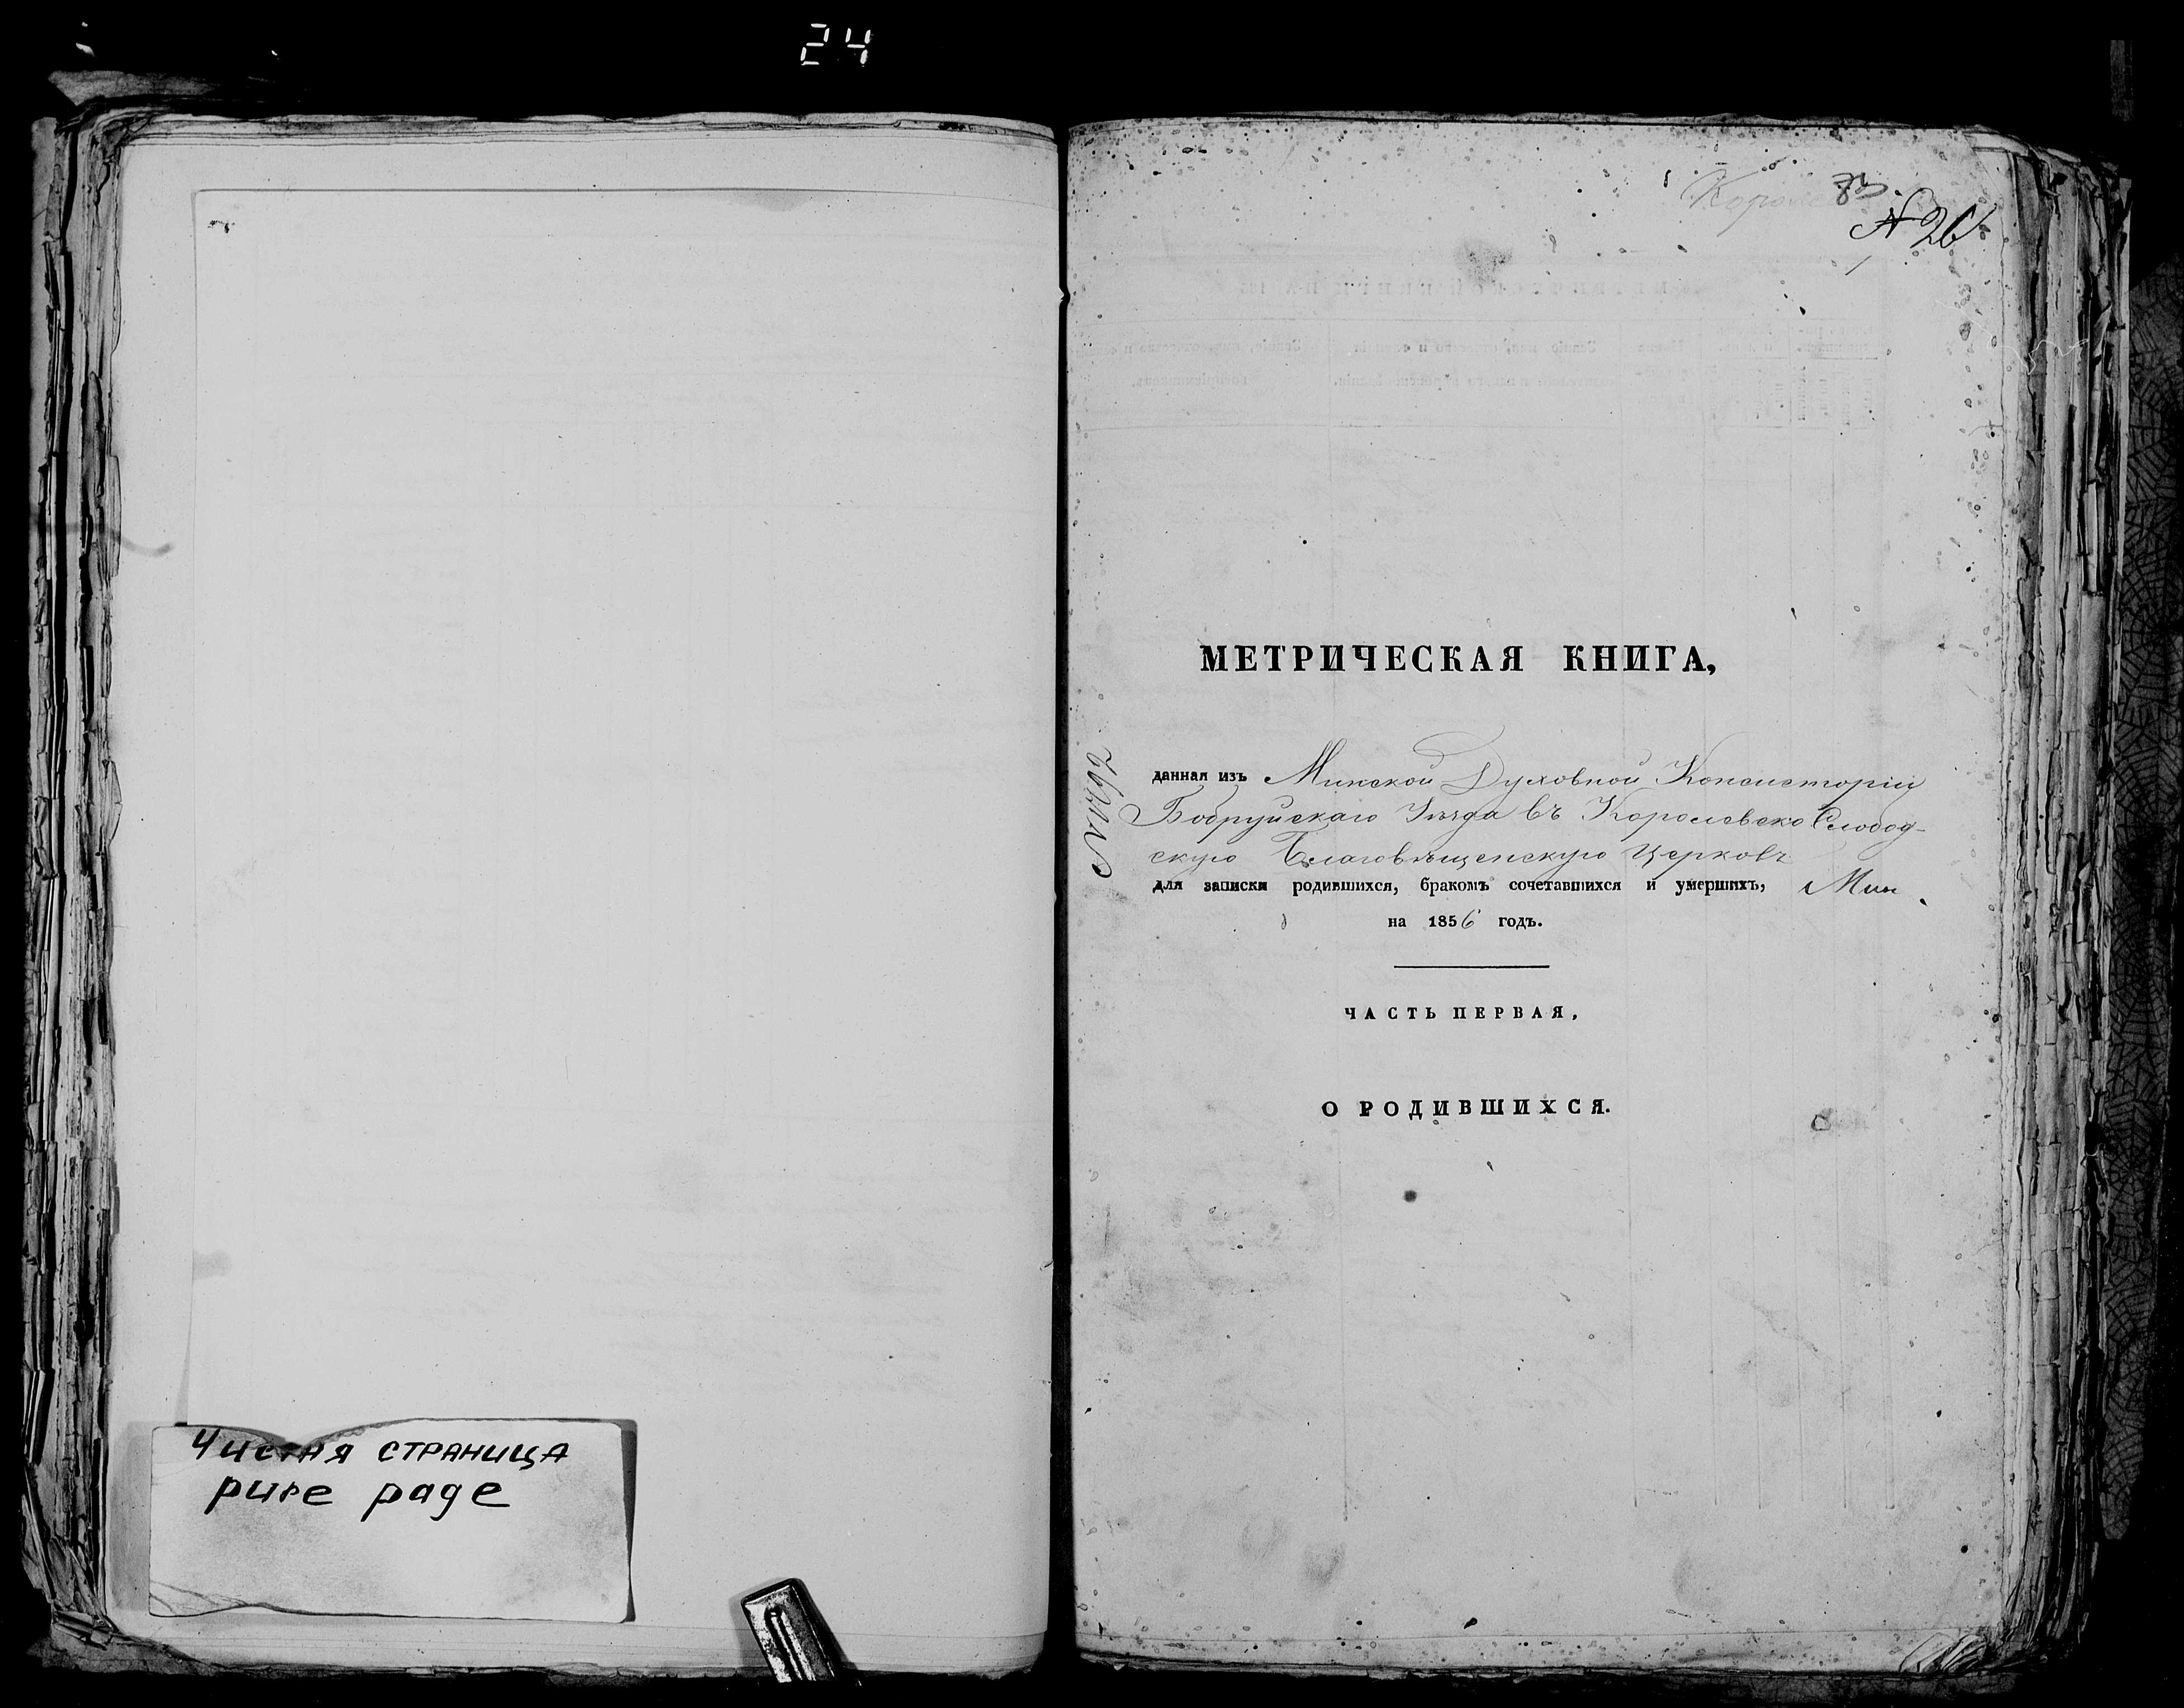 24
Чистая страница
pure page
N 26
МЕТРИЧЕСКАЯ КНИГА,
данная изъ Минской Духовной Консисторіи
Бобруйскаго Уѣзда въ Королевско Слобод-
скую Благовѣщенскую Церковь
для записки родившихся, бракомъ сочетавшихся и умершихъ,
на 1856 годъ.
ЧАСТЬ ПЕРВАЯ,
О РОДИВШИХСЯ.